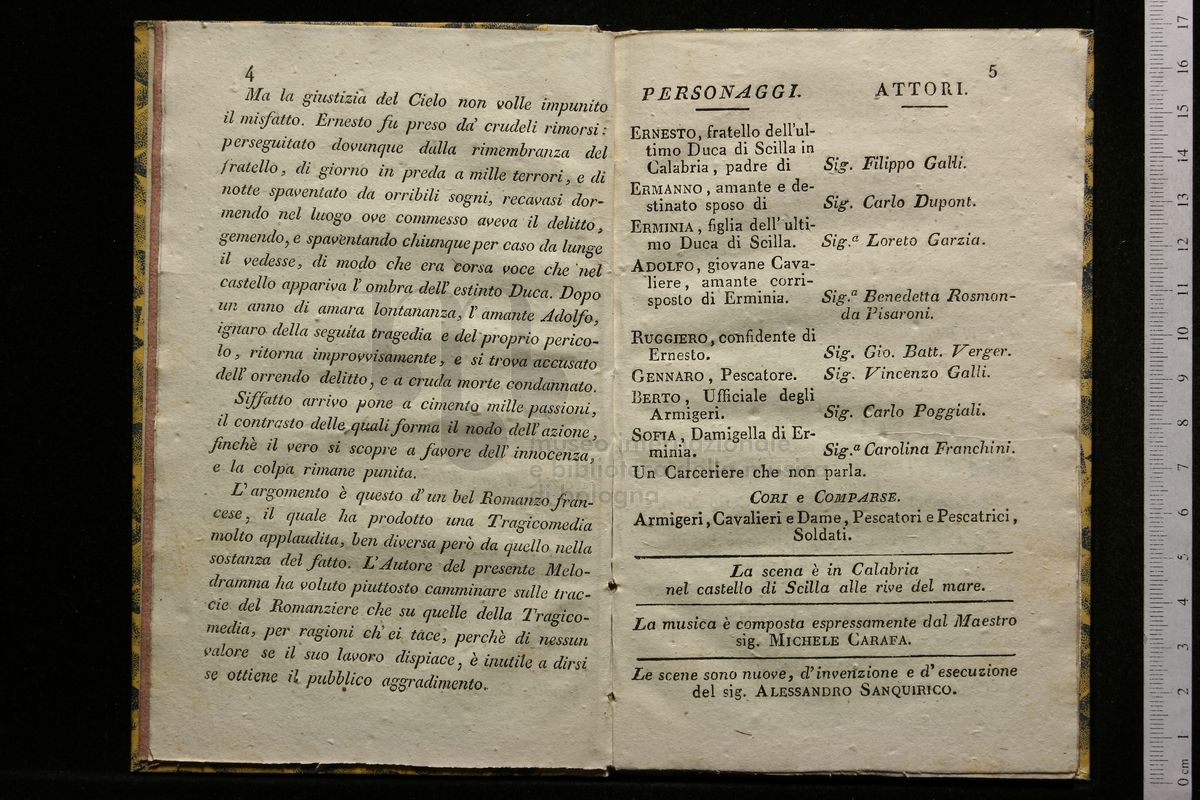 4
Ma la giustizia del Cielo non volle impunito
il misfatto. Ernesto fu preso da' crudeli rimorsi:
perseguitato dovunque dalla rimembranza del
fratello, di giorno in preda a mille terrori, e di
notte spaventato da orribili sogni, recavasi dor-
mendo nel luogo ove commesso aveva il delitto,
gemendo, e spaventando chiunque per caso da lunge
il vedesse, di modo che era corsa voce che nel
castello appariva l'ombra dell'estinto Duca. Dopo
un anno di amara lontananza, l'amante Adolfo,
ignaro della seguita tragedia e del proprio perico-
lo, ritorna improvvisamente, e si trova accusato
dell'orrendo delitto, e a cruda morte condannato.
Siffatto arrivo pone a cimento mille passioni,
il contrasto delle quali forma il nodo dell'azione,
finchè il vero si scopre a favore dell'innocenza,
e la colpa rimane punita.
L'argomento è questo d'un bel Romanzo fran-
cese, il quale ha prodotto una Tragicomedia
molto applaudita, ben diversa però da quello nella
sostanza del fatto. L'Autore del presente Melo-
dramma ha voluto piuttosto camminare sulle trac-
cie del Romanziere che su quelle della Tragico-
media, per ragioni ch'ei tace, perchè di nessun
valore se il suo lavoro dispiace, è inutile a dirsi
se ottiene il pubblico aggradimento.
5
PERSONAGGI. ATTORI.
ERNESTO, fratello dell'ul-
timo Duca di Scilla in
Calabria, padre di Sig. Filippo Galli.
ERMANNO, amante e de-
stinato sposo di Sig. Carlo Dupont.
ERMINIA, figlia dell'ulti-
mo Duca di Scilla. Sig.a Loreto Garzia.
ADOLFO, giovane Cava-
liere, amante corri-
sposto di Erminia. Sig.a Benedetta Rosmon-
da Pisaroni.
RUGGIERO, confidente di
Ernesto. Sig. Gio. Batt. Verger.
GENNARO, Pescatore. Sig. Vincenzo Galli.
BERTO, Ufficiale degli
Armigeri. Sig. Carlo Poggiali.
SOFIA, Damigella di Er-
minia. Sig.a Carolina Franchini.
Un Carceriere che non parla.
CORI e COMPARSE.
Armigeri, Cavalieri e Dame, Pescatori e Pescatrici,
Soldati.
La scena è in Calabria
nel castello di Scilla alle rive del mare.
La musica è composta espressamente dal Maestro
sig. MICHELE CARAFA.
Le scene sono nuove, d'invenzione e d'esecuzione
del sig. ALESSANDRO SANQUIRICO.
museo internazionale
e biblioteca della musica
di bologna
17
16
15
14
13
12
11
10
9
8
7
6
5
4
3
2
1
0 cm